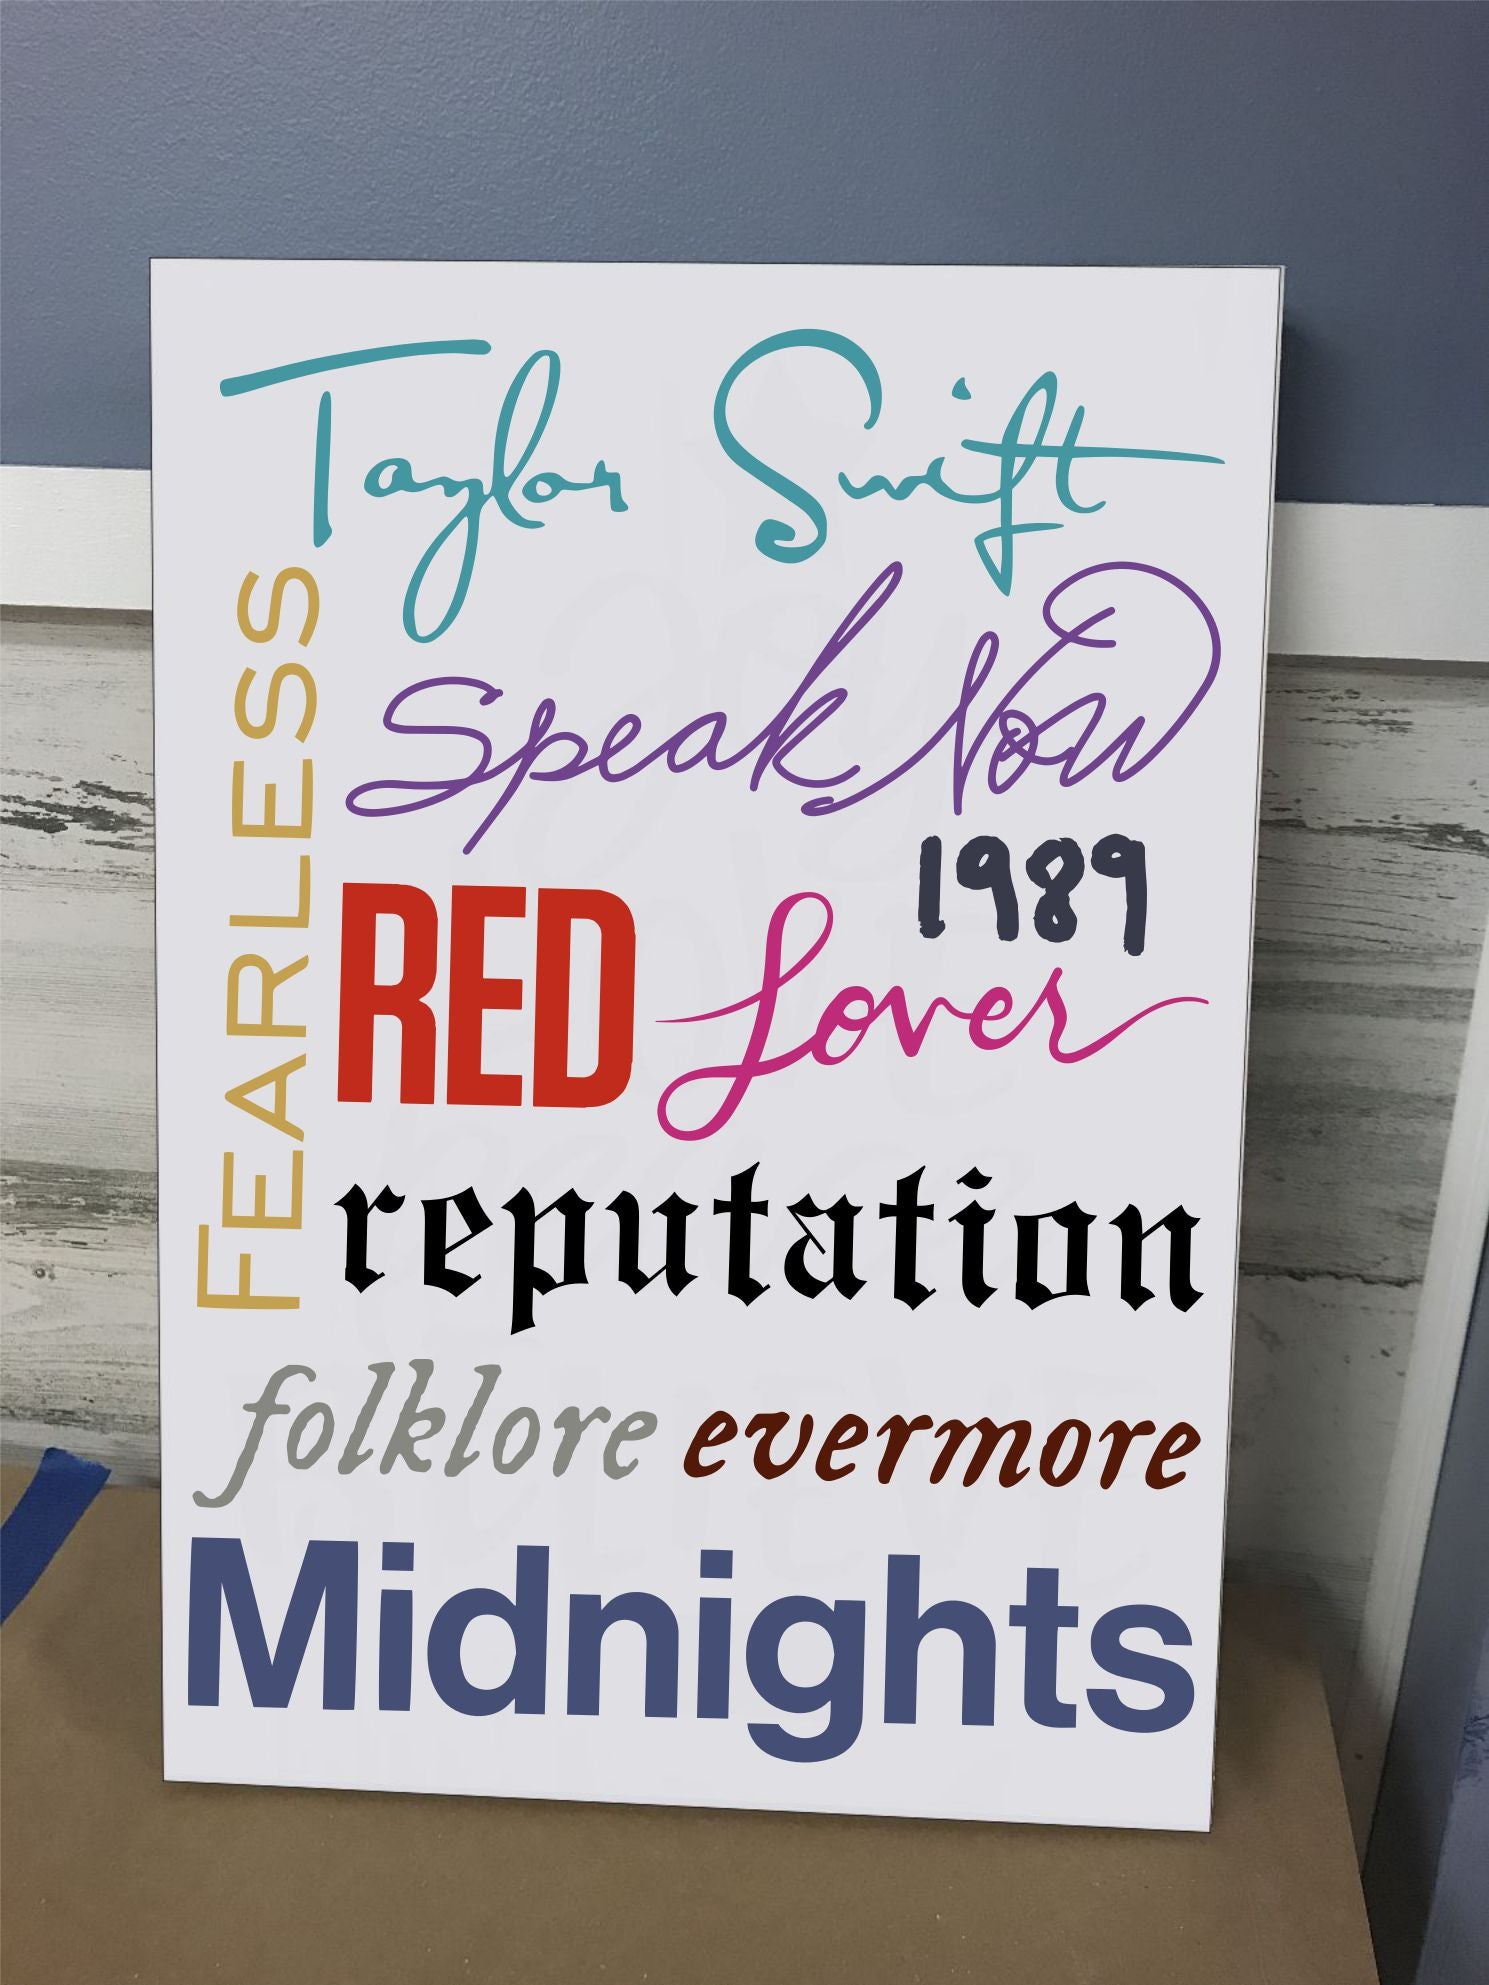 Taylor Swift
FEARLESS
Speak Now
1989
RED Lover
reputation
folklore evermore
Midnights